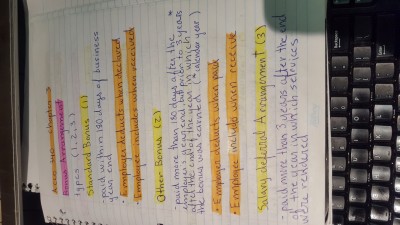 Acco 340 - chapter 3
Bonus Arrangement
types (1, 2, 3)
Standard Bonus (1)
- paid within 180 days of business
year end
• Employer deducts when declared
• Employee includes when received
Other Bonus (2)
- paid more than 180 days after the
employer's year end, but prior to 3 years
after the end of the year in which
the bonus was earned (* calendar year)
• Employer deducts when paid
• Employee include when received
Salary deferral Arrangement (3)
- Paid more than 3 years after the end
of the year in which services
were rendered